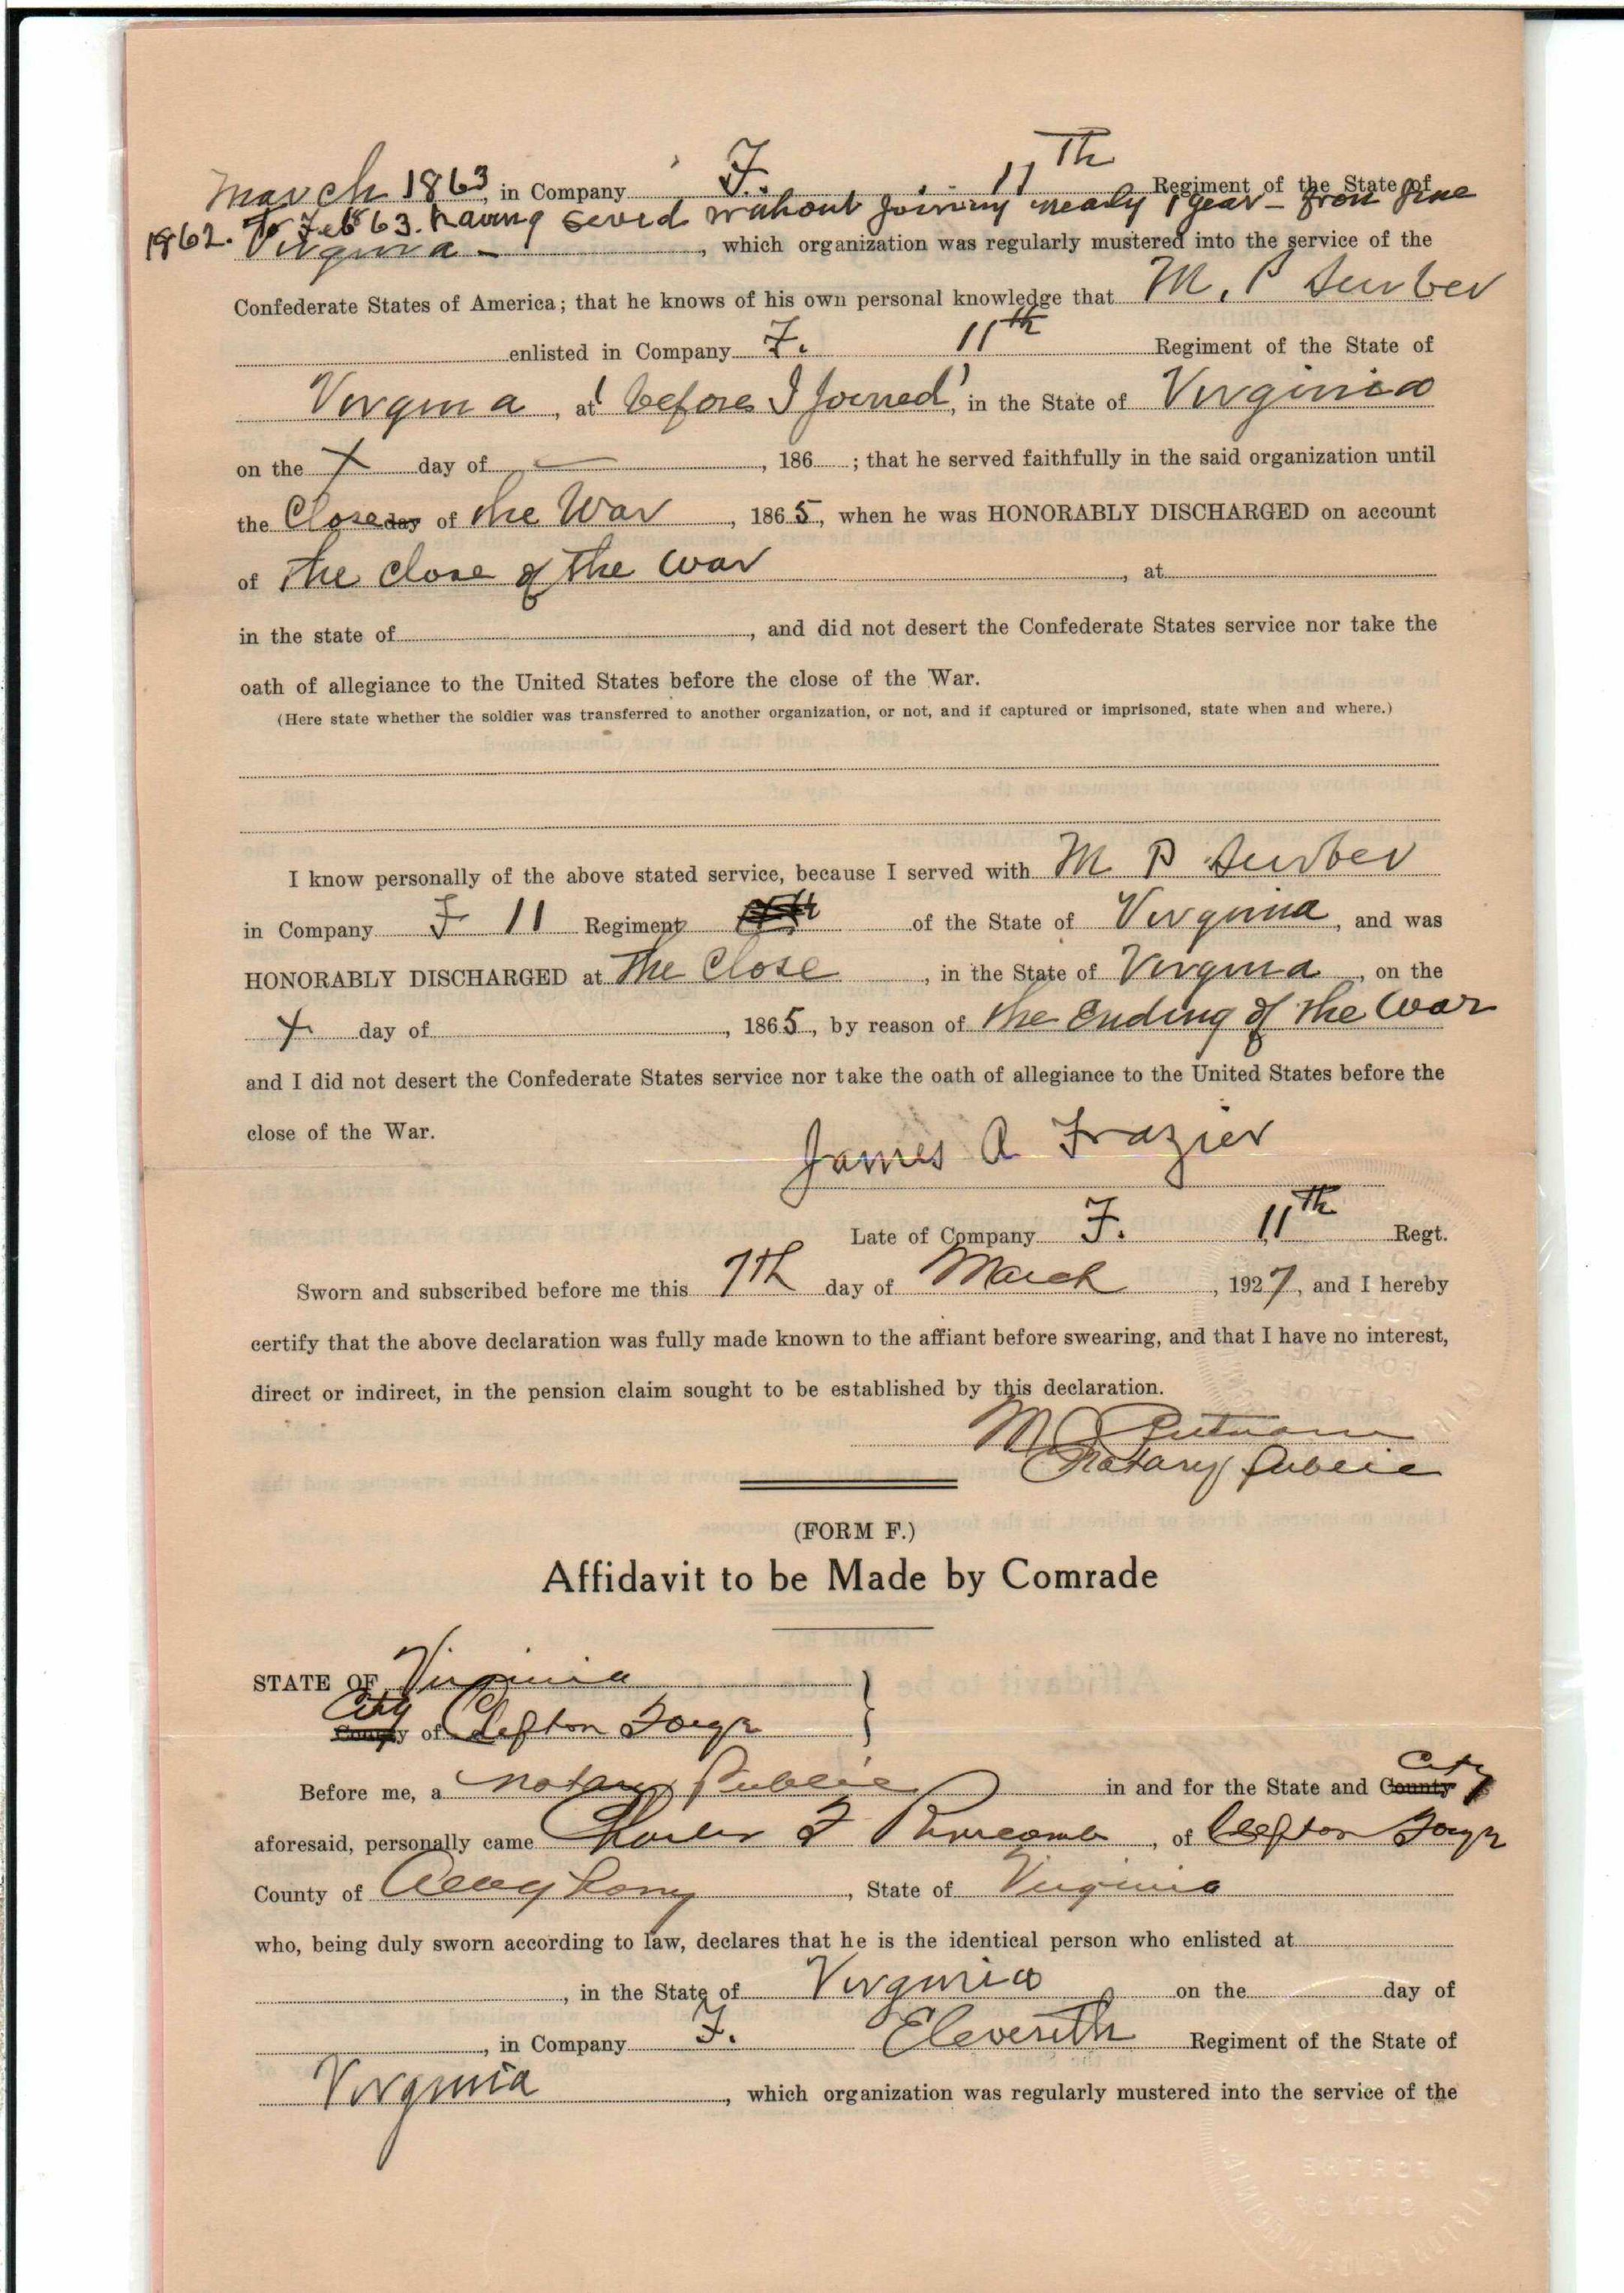 March 1863, in Company F. 11th Regiment of the State of
1862. To Feb 63. having served without joining nearly 1 year - from June
Virginia -, which organization was regularly mustered into the service of the
Confederate States of America; that he knows of his own personal knowledge that M. P Surber
enlisted in Company F. 11th Regiment of the State of
Virgina, at "before I joined", in the State of Virginia
on the X day of —, 186 ; that he served faithfully in the said organization until
the Close day of the War, 1865, when he was HONORABLY DISCHARGED on account
of the close of the war, at
in the state of , and did not desert the Confederate States service nor take the
oath of allegiance to the United States before the close of the War.
(Here state whether the soldier was transferred to another organization, or not, and if captured or imprisoned, state when and where.)
I know personally of the above stated service, because I served with M P Surber
in Company F 11 Regiment of the State of Virginia, and was
HONORABLY DISCHARGED at The Close, in the State of Virgina, on the
X day of , 1865, by reason of the Ending of the war
and I did not desert the Confederate States service nor take the oath of allegiance to the United States before the
close of the War.
James A Frazier
Late of Company F. 11th Regt.
Sworn and subscribed before me this 7th day of March, 1927, and I hereby
certify that the above declaration was fully made known to the affiant before swearing, and that I have no interest,
direct or indirect, in the pension claim sought to be established by this declaration.
Putnam
Notary Public
(FORM F.)
Affidavit to be Made by Comrade
STATE OF Virginia
City
County of Clifton Forge
Before me, a Notary Public in and for the State and County City
aforesaid, personally came Charles F , of Clifton Forge
County of Alleghany, State of Virginia
who, being duly sworn according to law, declares that he is the identical person who enlisted at
, in the State of Virginia on the day of
, in Company F. Eleventh Regiment of the State of
Virginia, which organization was regularly mustered into the service of the